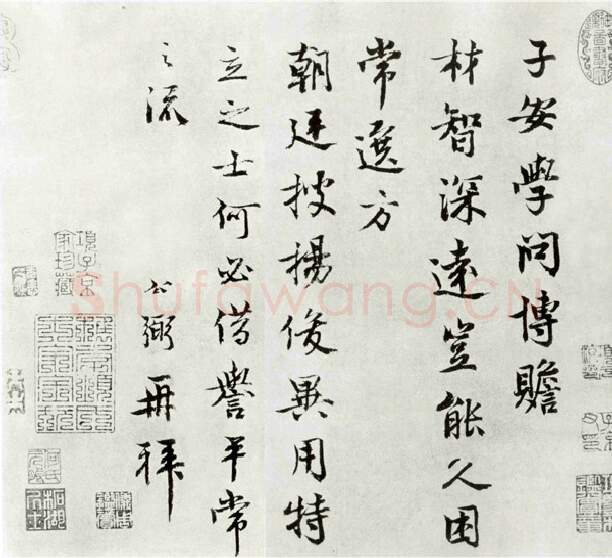 子安學問博贍
材智深遠豈能久困
常選方
朝廷搜揚俊異用特
立之士何必借譽平常
之流
公弼再拜
Shufawang.CN
項子京
家珍藏